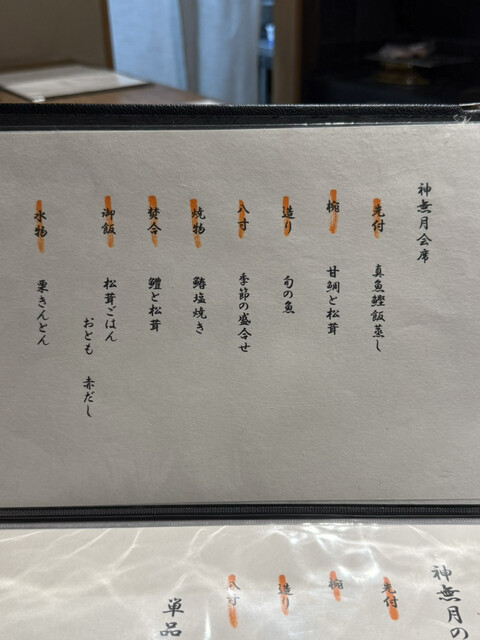 神無月会席
先付 真魚鰹飯蒸し
椀 甘鯛と松茸
造り 旬の魚
八寸 季節の盛合せ
焼物 鰆塩焼き
焚合 鱧と松茸
御飯 松茸ごはん
おとも 赤だし
水物 栗きんとん
神無月の
先付
椀
造り
八寸
単品